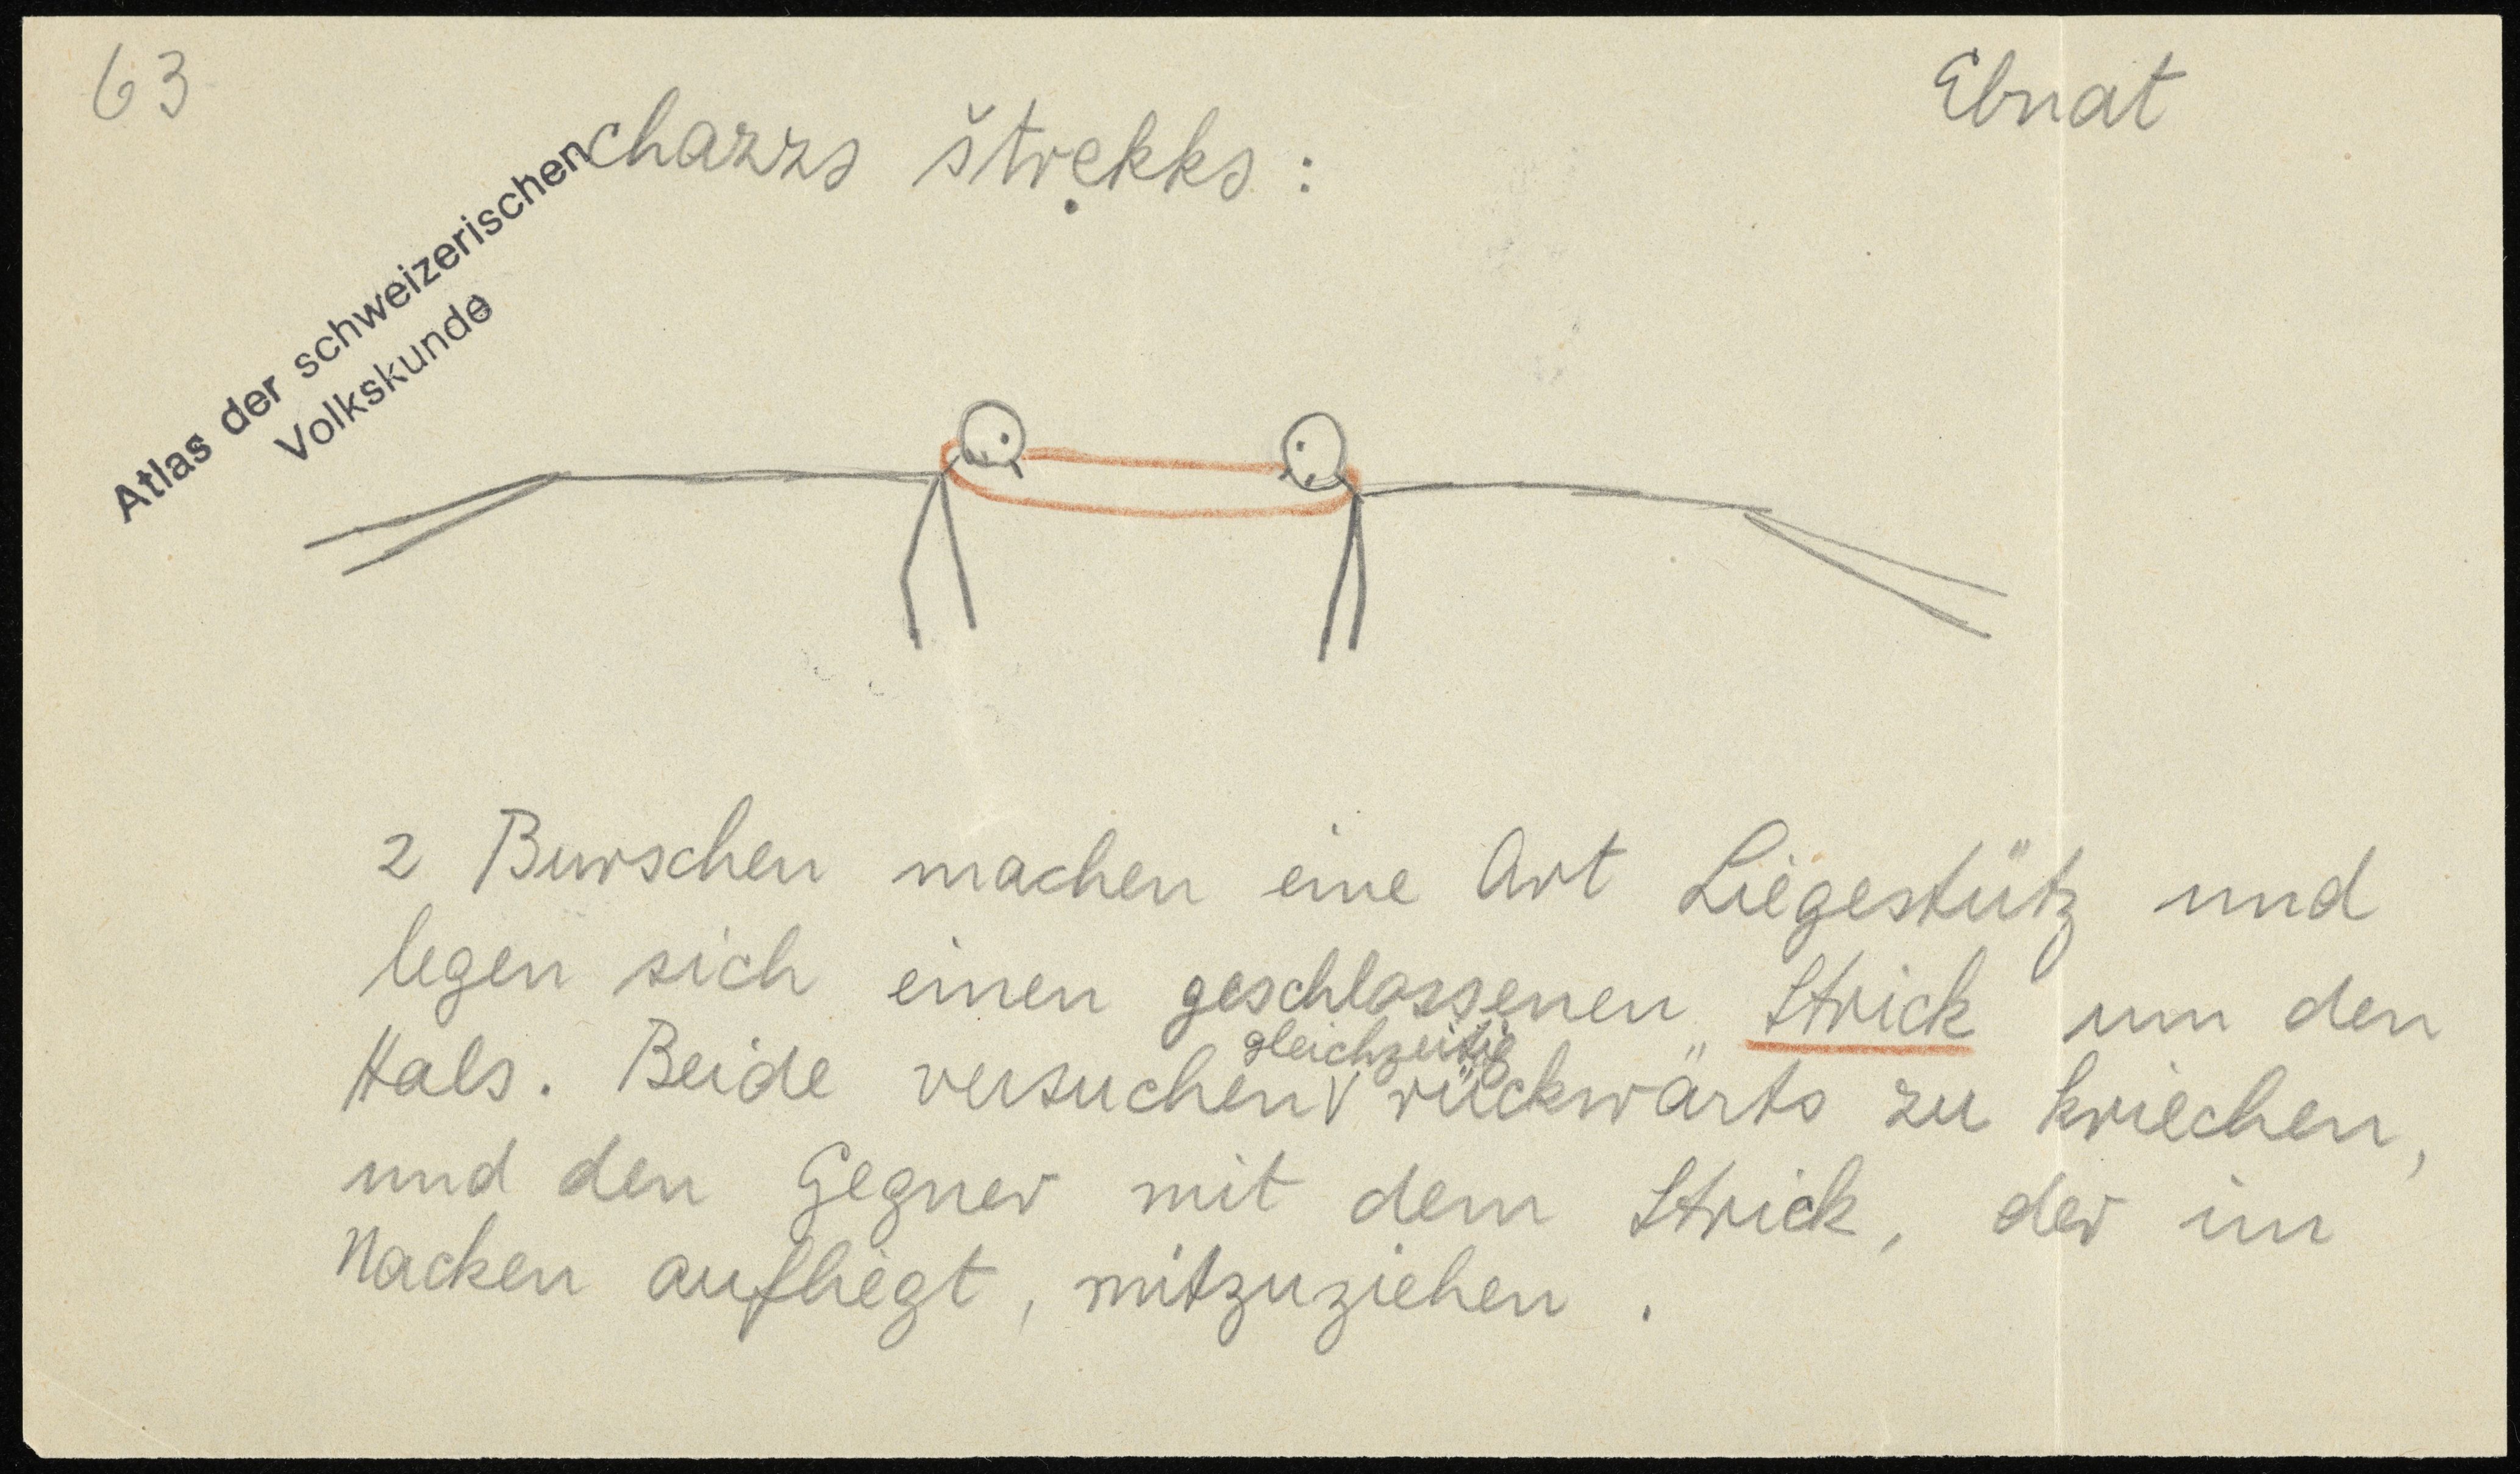 63
Ebnat
chazzə štrẹkkə :
Atlas der schweizerischen
Volkskunde
2 Burschen machen eine Art Liegestütz und
legen sich einen geschlossenen Strick um den
gleichzeitig
Hals. Beide versuchen √ rückwärts zu kriechen,
und den Gegner mit dem Strick, der im
Nacken aufliegt, mitzuziehen .